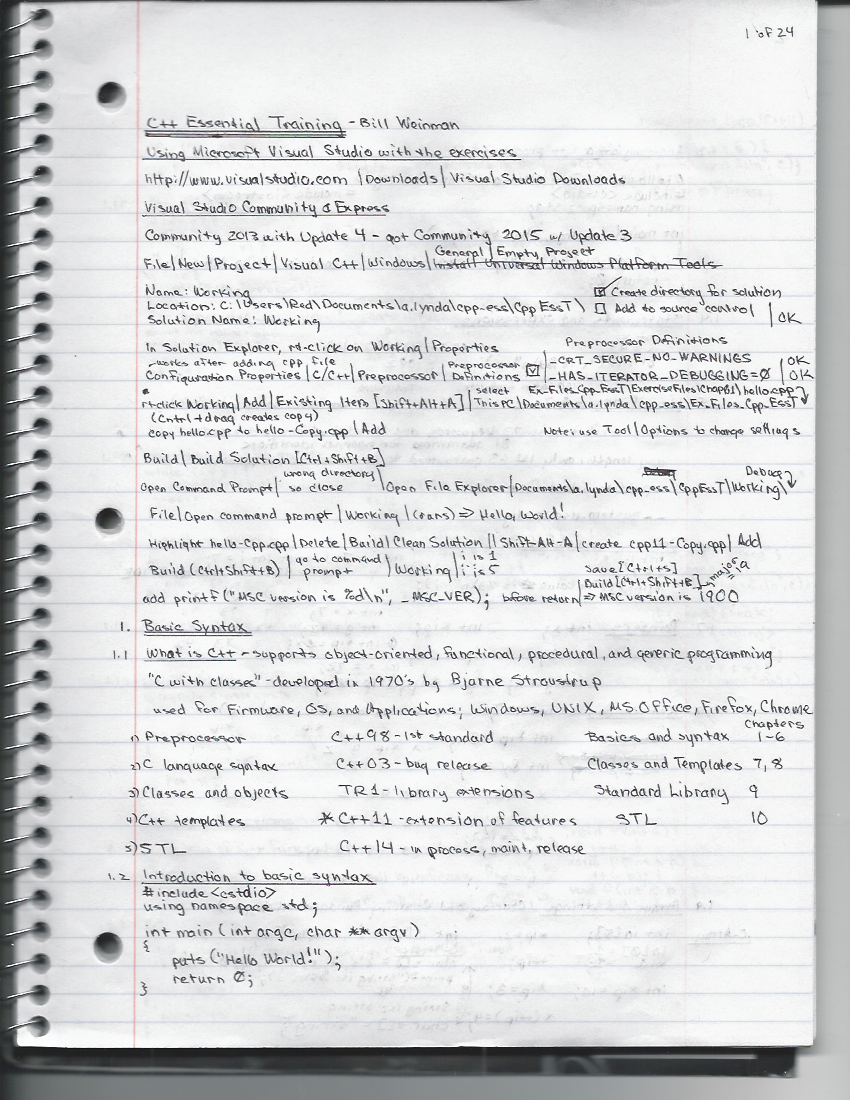 1 of 24
C++ Essential Training - Bill Weinman
Using Microsoft Visual Studio with the exercises
http://www.visualstudio.com | Downloads | Visual Studio Downloads
Visual Studio Community & Express
Community 2013 with Update 4 - got Community 2015 w/ Update 3
General | Empty Project
File/New/Project/Visual C++/Windows/Install Universal Windows Platform Tools
Name: Working
☑ Create directory for solution
Location: C:\Users\Red\Documents\a.lynda\cpp-ess\CppEssT\ ☐ Add to source control | OK
Solution Name: Working
In Solution Explorer, rt-click on Working/Properties
Preprocessor Definitions
-works after adding cpp file
Configuration Properties | C/C++ | Preprocessor | Preprocessor Definitions ☑
_CRT_SECURE_NO_WARNINGS | OK
_HAS_ITERATOR_DEBUGGING=0 | OK
select Ex_Files_Cpp_EssT\ExerciseFiles\Chap01\hello.cpp
rt-click Working/Add/Existing Item [Shift+Alt+A] | This PC\Documents\a.lynda\cpp_ess\Ex_Files_Cpp_EssT
(Cntrl + drag creates copy)
copy hello.cpp to hello-Copy.cpp | Add
Note: use Tool/Options to change settings
Build/Build Solution [Ctrl+Shift+B]
Open Command Prompt | wrong directory so close | Open File Explorer/Documents\a.lynda\cpp-ess\CppEssT\Working\ Debug
File/Open command prompt | Working | (runs) => Hello, World!
Highlight hello-Cpp.cpp | Delete | Build | Clean Solution || Shift-Alt-A | create cpp11-Copy.cpp | Add
Build (Ctrl+Shift+B) | go to command prompt | Working | i is 1
i is 5
save [Ctrl+s]
Build [Ctrl+Shift+B] major
add printf("MSC version is %d\n", _MSC_VER); before return => MSC version is 1900
1. Basic Syntax
1.1 What is C++ - supports object-oriented, functional, procedural, and generic programming
"C with classes" - developed in 1970's by Bjarne Stroustrup
used for Firmware, OS, and Applications; Windows, UNIX, MS Office, Firefox, Chrome
chapters
1) Preprocessor C++98 - 1st standard Basics and syntax 1-6
2) C language syntax C++03 - bug release Classes and Templates 7, 8
3) Classes and objects TR1 - library extensions Standard Library 9
4) C++ templates * C++11 - extension of features STL 10
5) STL C++14 - in process, maint. release
1.2 Introduction to basic syntax
#include <cstdio>
using namespace std;
int main (int argc, char ** argv)
{
puts ("Hello World!");
return 0;
}